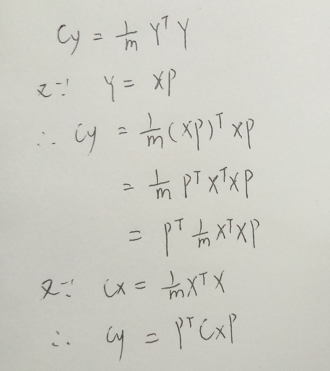 Cy = 1/m YᵀY
又∵ Y = XP
∴ Cy = 1/m (XP)ᵀXP
= 1/m PᵀXᵀXP
= Pᵀ 1/m XᵀXP
又∵ Cx = 1/m XᵀX
∴ Cy = PᵀCxP